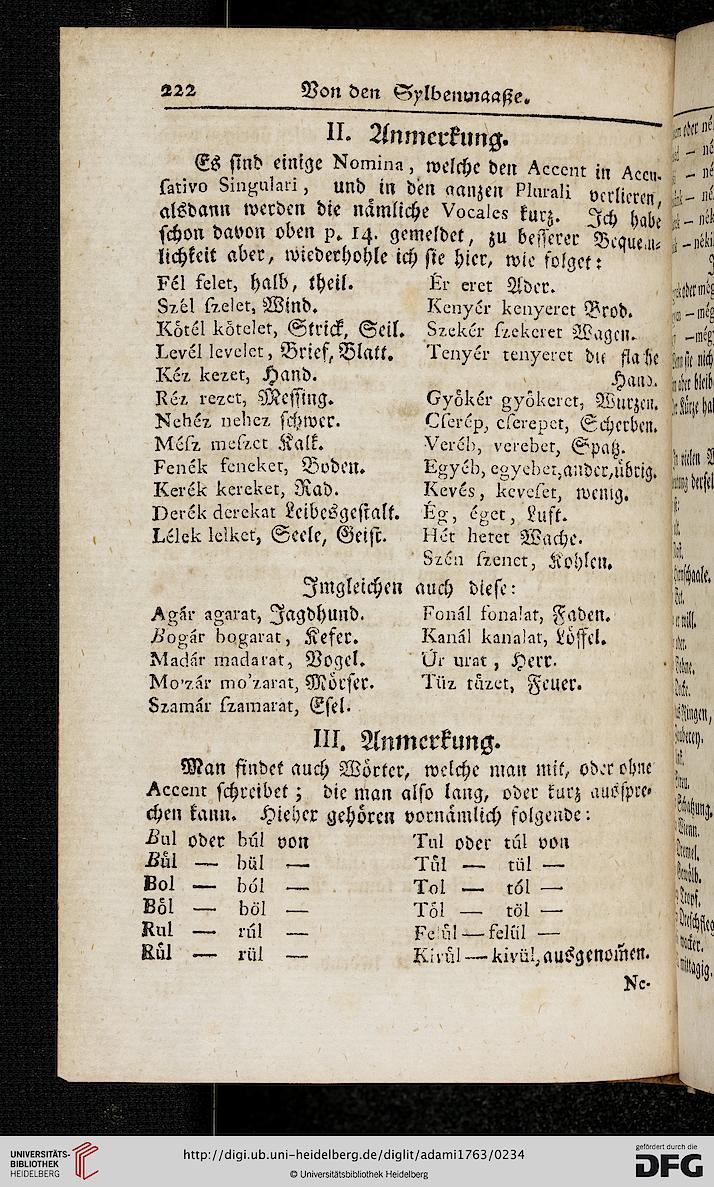 222 Von den Sylbenmaaße.
II. Anmerkung.
Es sind einige Nomina, welche den Accent in Accu-
sativo Singulari, und in den ganzen Plurali verlieren,
alsdann werden die nämliche Vocales kurz. Ich habe
schon davon oben p. 14. gemeldet, zu besserer Bequem-
lichkeit aber, wiederhohle ich sie hier, wie folget:
Fél felet, halb, theil.
Szél szelet, Wind.
Kötél kötelet, Strick, Seil.
Levél levelet, Brief, Blatt.
Kéz kezet, Hand.
Réz rezet, Messing.
Nehéz nehez schwer.
Mész meszet Kalk.
Fenék feneket, Boden.
Kerék kereket, Rad.
Derék derekat Leibesgestalt.
Lélek lelket, Seele, Geist.
Ér eret Ader.
Kenyér kenyeret Brod.
Szekér szekeret Wagen.
Tenyér tenyeret die flache
Hand.
Gyökér gyökeret, Wurzen.
Cserép, cserepet, Scherben.
Veréb, verebet, Spatz.
Egyéb, egyebet, ander, übrig.
Kevés, keveset, wenig.
Ég, éget, Luft.
Hét hetet Wache.
Szén szenet, Kohlen.
Imgleichen auch diese:
Agár agarat, Jagdhund.
Bogár bogarat, Kefer.
Madár madarat, Vogel.
Mo'zár mo'zarat, Mörser.
Szamár szamarat, Esel.
Fonál fonalat, Faden.
Kanál kanalat, Löffel.
Úr urat, Herr.
Tüz tüzet, Feuer.
III. Anmerkung.
Man findet auch Wörter, welche man mit, oder ohne
Accent schreibet; die man also lang, oder kurz ausspre-
chen kann. Hieher gehören vornämlich folgende:
Bul oder búl von
Bůl — bül —
Bol — ból —
Bôl — böl —
Rul — rúl —
Růl — rül —
Tul oder túl von
Tůl — tül —
Tol — tól —
Tôl — töl —
Felůl — felül —
Kivůl — kivül, ausgenom̄en.
Ne-
UNIVERSITÄTS-
BIBLIOTHEK
HEIDELBERG
http://digi.ub.uni-heidelberg.de/diglit/adami1763/0234
© Universitätsbibliothek Heidelberg
gefördert durch die
DFG